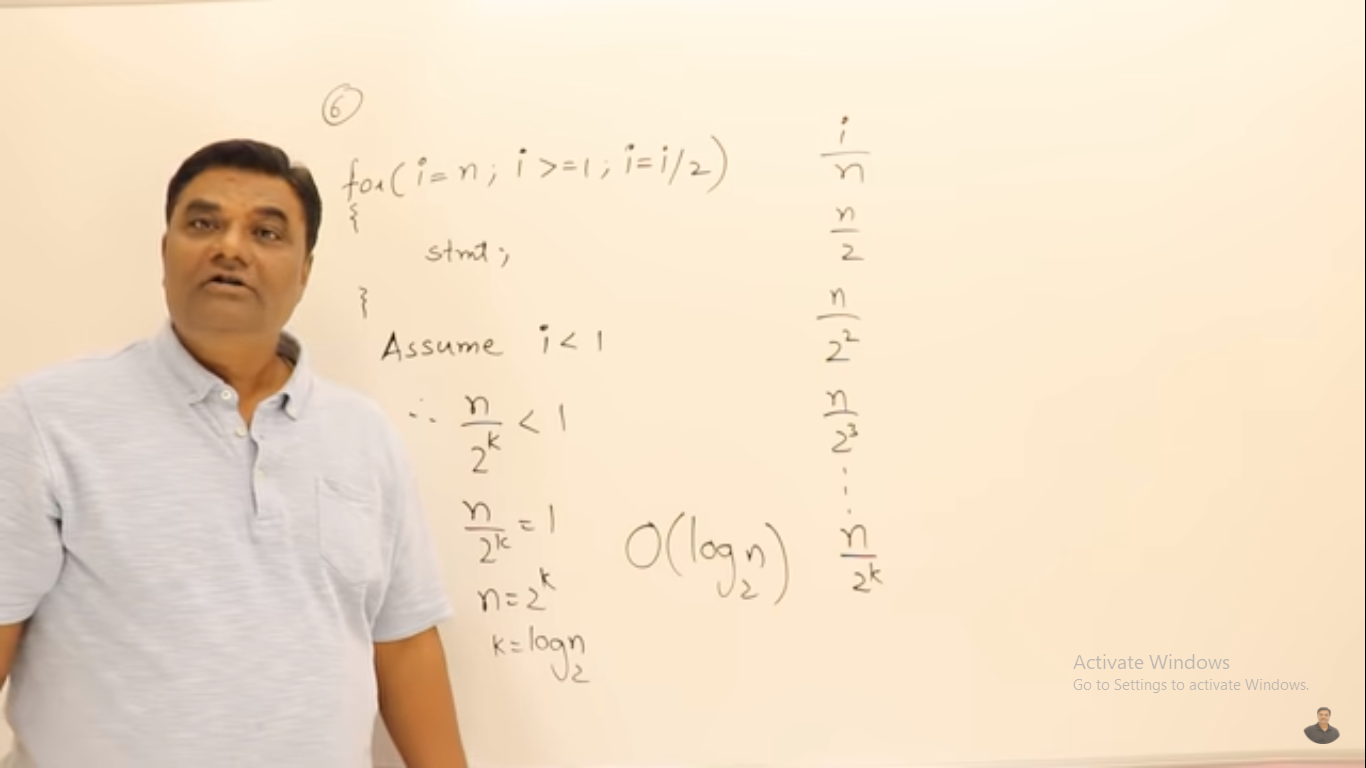 6
for(i=n; i>=1; i=i/2)
{
stmt;
}
Assume i<1
∴ n/2^k < 1
n/2^k = 1
n=2^k
k=log₂n
O(log₂n)
i
n
n/2
n/2²
n/2³
⋮
n/2^k
Activate Windows
Go to Settings to activate Windows.